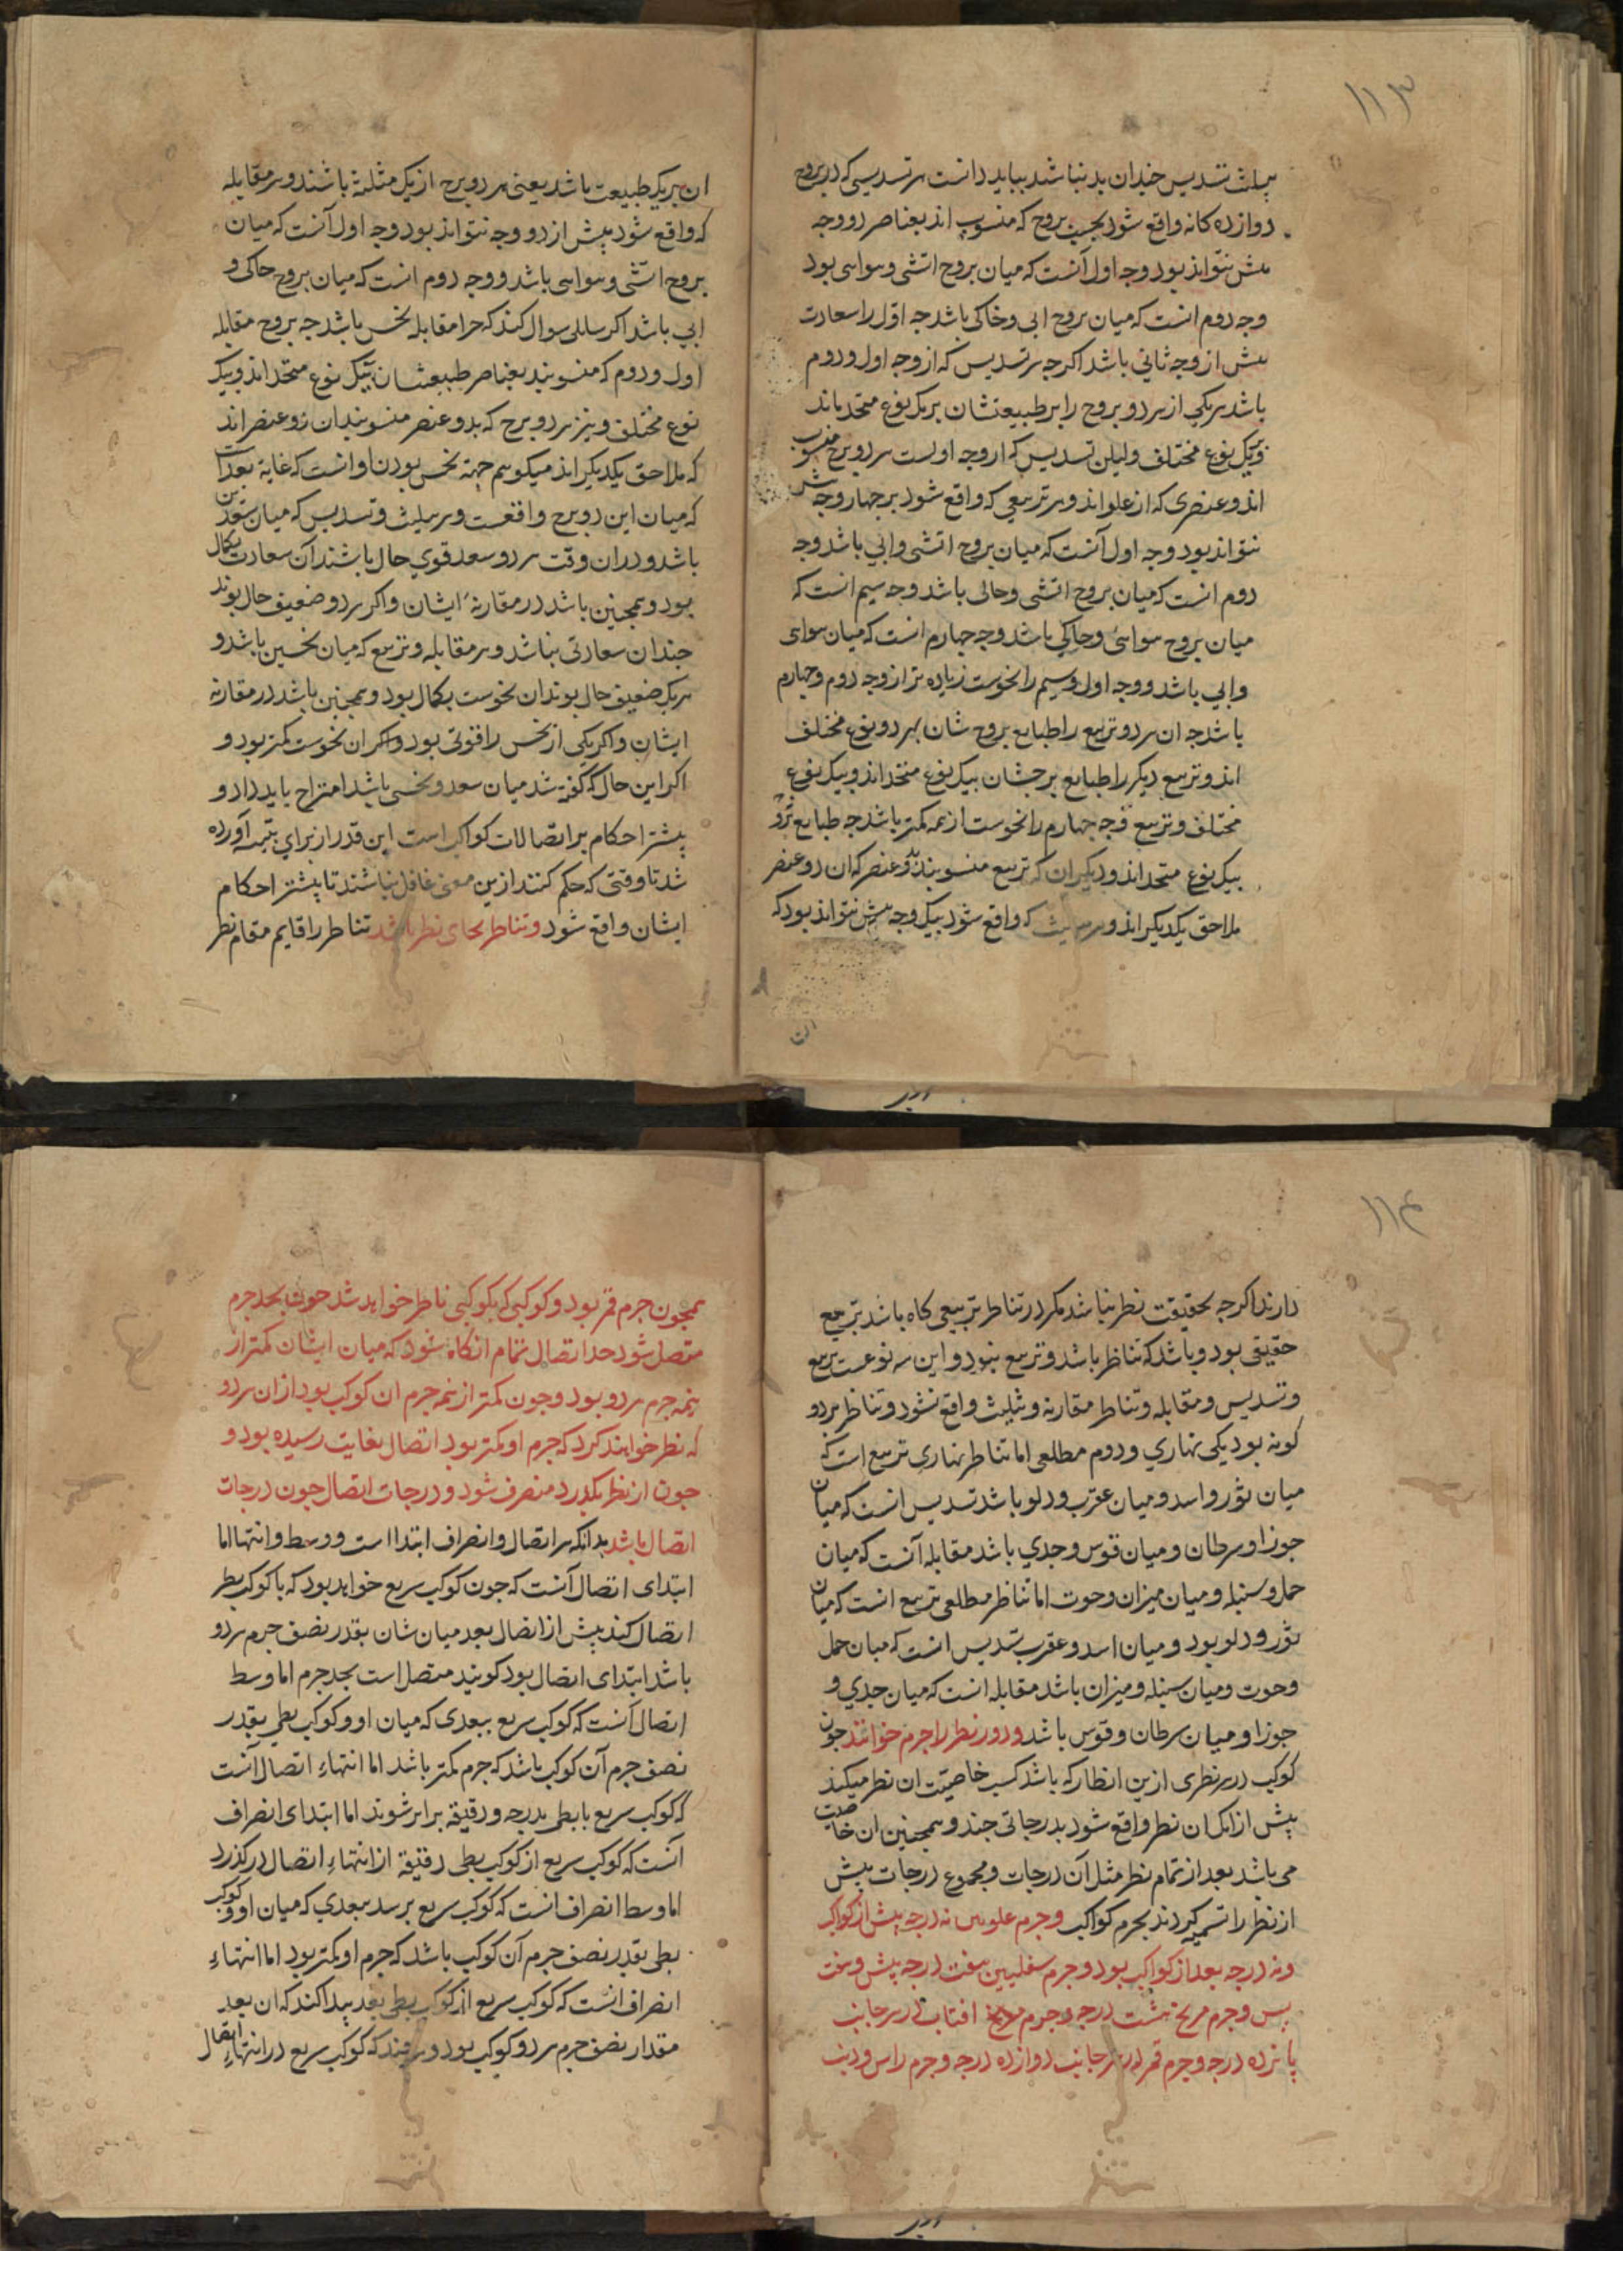 ۱۱۳
تثلیث تسدیس چندان بد نباشد بباید دانست هر تسدیسی که در بروج
دوازده کانه واقع شود بحسب بروج که منسوب اند بعناصر دو وجه
بیش نتواند بود وجه اول آنست که میان بروج اتشی و هوایی بود
وجه دوم انست که میان بروج ابی و خاکی باشد جه اول را سعادت
بیش از وجه ثانی باشد اکرجه هر تسدیس که از وجه اول و دوم
باشد هر یکی از هر دو بروج را بر طبیعتشان بریک نوع متحد باند
و یک نوع مختلف ولیکن تسدیس که از وجه اولست هر دو برج منسوب
اند و عنصری که از علو اند و هر تربیعی که واقع شود بر جهار وجه بیش
نتواند بود وجه اول آنست که میان بروج اتشی و ابی باشد وجه
دوم انست که میان بروج اتشی و خاکی باشد وجه سیم انست که
میان بروج هوائی و خاکی باشد وجه جهارم انست که میان هوای
و ابی باشد و وجه اول و سیم را نحوست زیاده تر از وجه دوم و جهارم
باشد جه ان هر دو تربیع را طبایع بروج شان بهر دو نوع مختلف
اند و تربیع دیکر را طبایع برجشان بیک نوع متحد اند و بیک نوع
مختلف و تربیع وجه جهارم را نحوست از همه کمتر باشد جه طبایع
بیک نوع متحد اند و دیکر ان که تربیع منسوبند بدو عنصر که ان دو عنصر
ملاحق یکدیکر اند و هر تثلیث که واقع شود بیک وجه بیش نتواند بود که
ان
ان بریک طبیعت باشد یعنی هر دو برج از یک مثلثه باشند و هر مقابله
که واقع شود بیش از دو وجه نتواند بود وجه اول آنست که میان
بروج اتشی و هوایی باشد و وجه دوم انست که میان بروج خاکی و
ابی باشد اکر سایلی سوال کند که جرا مقابله نحس باشد جه بروج مقابله
اول و دوم که منسوبند بعناصر طبیعتشان بیک نوع متحد اند و بیک
نوع مختلف و نیز هر دو برج که بدو عنصر منسوبند ان دو عنصر اند
که ملاحق یکدیکر اند میکوییم جهة نحس بودن او انست که غایة بعد است
که میان این دو برج واقعست و هر تثلیث و تسدیس که میان سعدین
باشد و در ان وقت هر دو سعد قوی حال باشند آن سعادت بکمال
بود و همجنین باشد در مقارنهٔ ایشان و اکر هر دو ضعیف حال بوند
جندان سعادتی نباشد و هر مقابله و تربیع که میان نحسین باشد و
هر یک ضعیف حال بوند ان نحوست بکمال بود و همجنین باشد در مقارنه
ایشان و اکر یکی از نحس را قوتی بود و اکر ان نحوست کمتر بود و
اکر این حال که کفته شد میان سعد و نحسی باشد امتزاج باید داد و
بیشتر احکام بر اتصالات کواکب است این قدر از برای تتمه آورده
شد تا وقتی که حکم کنند ازین معنی غافل نباشند تا بیشتر احکام
ایشان واقع شود و تناظر بجای نظر باشد تناظر را قایم مقام نظر
۱۱۴
دارند اکرجه بحقیقت نظر نباشد مکر در تناظر تربیعی کاه باشد تربیع
حقیقی بود و باشد که تناظر باشد و تربیع نبود و این سه نوعست تربیع
و تسدیس و مقابله و تناظر مقارنه و تثلیث واقع نشود و تناظر بر دو
کونه بود یکی نهاری و دوم مطلعی اما تناظر نهاری تربیع است که
میان ثور و اسد و میان عقرب و دلو باشد تسدیس انست که میان
جوزا و سرطان و میان قوس و جدی باشد مقابله آنست که میان
حمل و سنبله و میان میزان و حوت اما تناظر مطلعی تربیع انست که میان
ثور و دلو بود و میان اسد و عقرب تسدیس انست که میان حمل
و حوت و میان سنبله و میزان باشد مقابله انست که میان جدی و
جوزا و میان سرطان و قوس باشد و دور نظر را جرم خوانند جون
کوکب در هر نظری ازین انظار که باشد کسب خاصیت ان نظر میکند
بیش از انک ان نظر واقع شود بدرجاتی جند و همجنین ان خاصیت
می باشد بعد از تمام نظر مثل آن درجات و مجموع درجات بیش
از نظر را تسمیه کردند بجرم کواکب و جرم علویین نه درجه بیش از کواکب
و نه درجه بعد از کواکب بود و جرم سفلیین هفت درجه بیش و هفت
بس و جرم مریخ هشت درجه و جرم افتاب در هر جانب
پانزده درجه و جرم قمر در هر جانب دوازده درجه و جرم راس و ذنب
همجون جرم قمر بود و کوکبی که بکوکبی ناظر خواهد شد جون بحد جرم
متصل شود حد اتصال تمام انکاه شود که میان ایشان کمتر از
نیمه جرم هر دو بود و جون کمتر از نیمه جرم ان کوکب بود از ان هر دو
که نظر خواهند کرد که جرم او کمتر بود اتصال بغایت رسیده بود و
جون از نظر بکذرد منصرف شود و درجات اتصال جون درجات
اتصال باشد بدانکه هر اتصال و انصراف ابتدا است و وسط و انتها اما
ابتدای اتصال آنست که جون کوکب سریع خواهد بود که با کوکب بطی
اتصال کند بیش از اتصال بعد میان شان بقدر نصف جرم هر دو
باشد ابتدای اتصال بود کویند متصل است بحد جرم اما وسط
اتصال آنست که کوکب سریع ببعدی که میان او و کوکب بطی بقدر
نصف جرم آن کوکب باشد که جرم کمتر باشد اما انتهاء اتصال آنست
که کوکب سریع با بطی بدرجه و دقیقه برابر شوند اما ابتدای انصراف
آنست که کوکب سریع از کوکب بطی دقیقة از انتهاء اتصال در کذرد
اما وسط انصراف انست که کوکب سریع برسد ببعدی که میان او و کوکب
بطی بقدر نصف جرم آن کوکب باشد که جرم او کمتر بود اما انتهاء
انصراف انست که کوکب سریع از کوکب بطی بعد بیدا کند که ان بعد
مقدار نصف جرم هر دو کوکب بود و هر جند که کوکب سریع در انتهاء اتصال